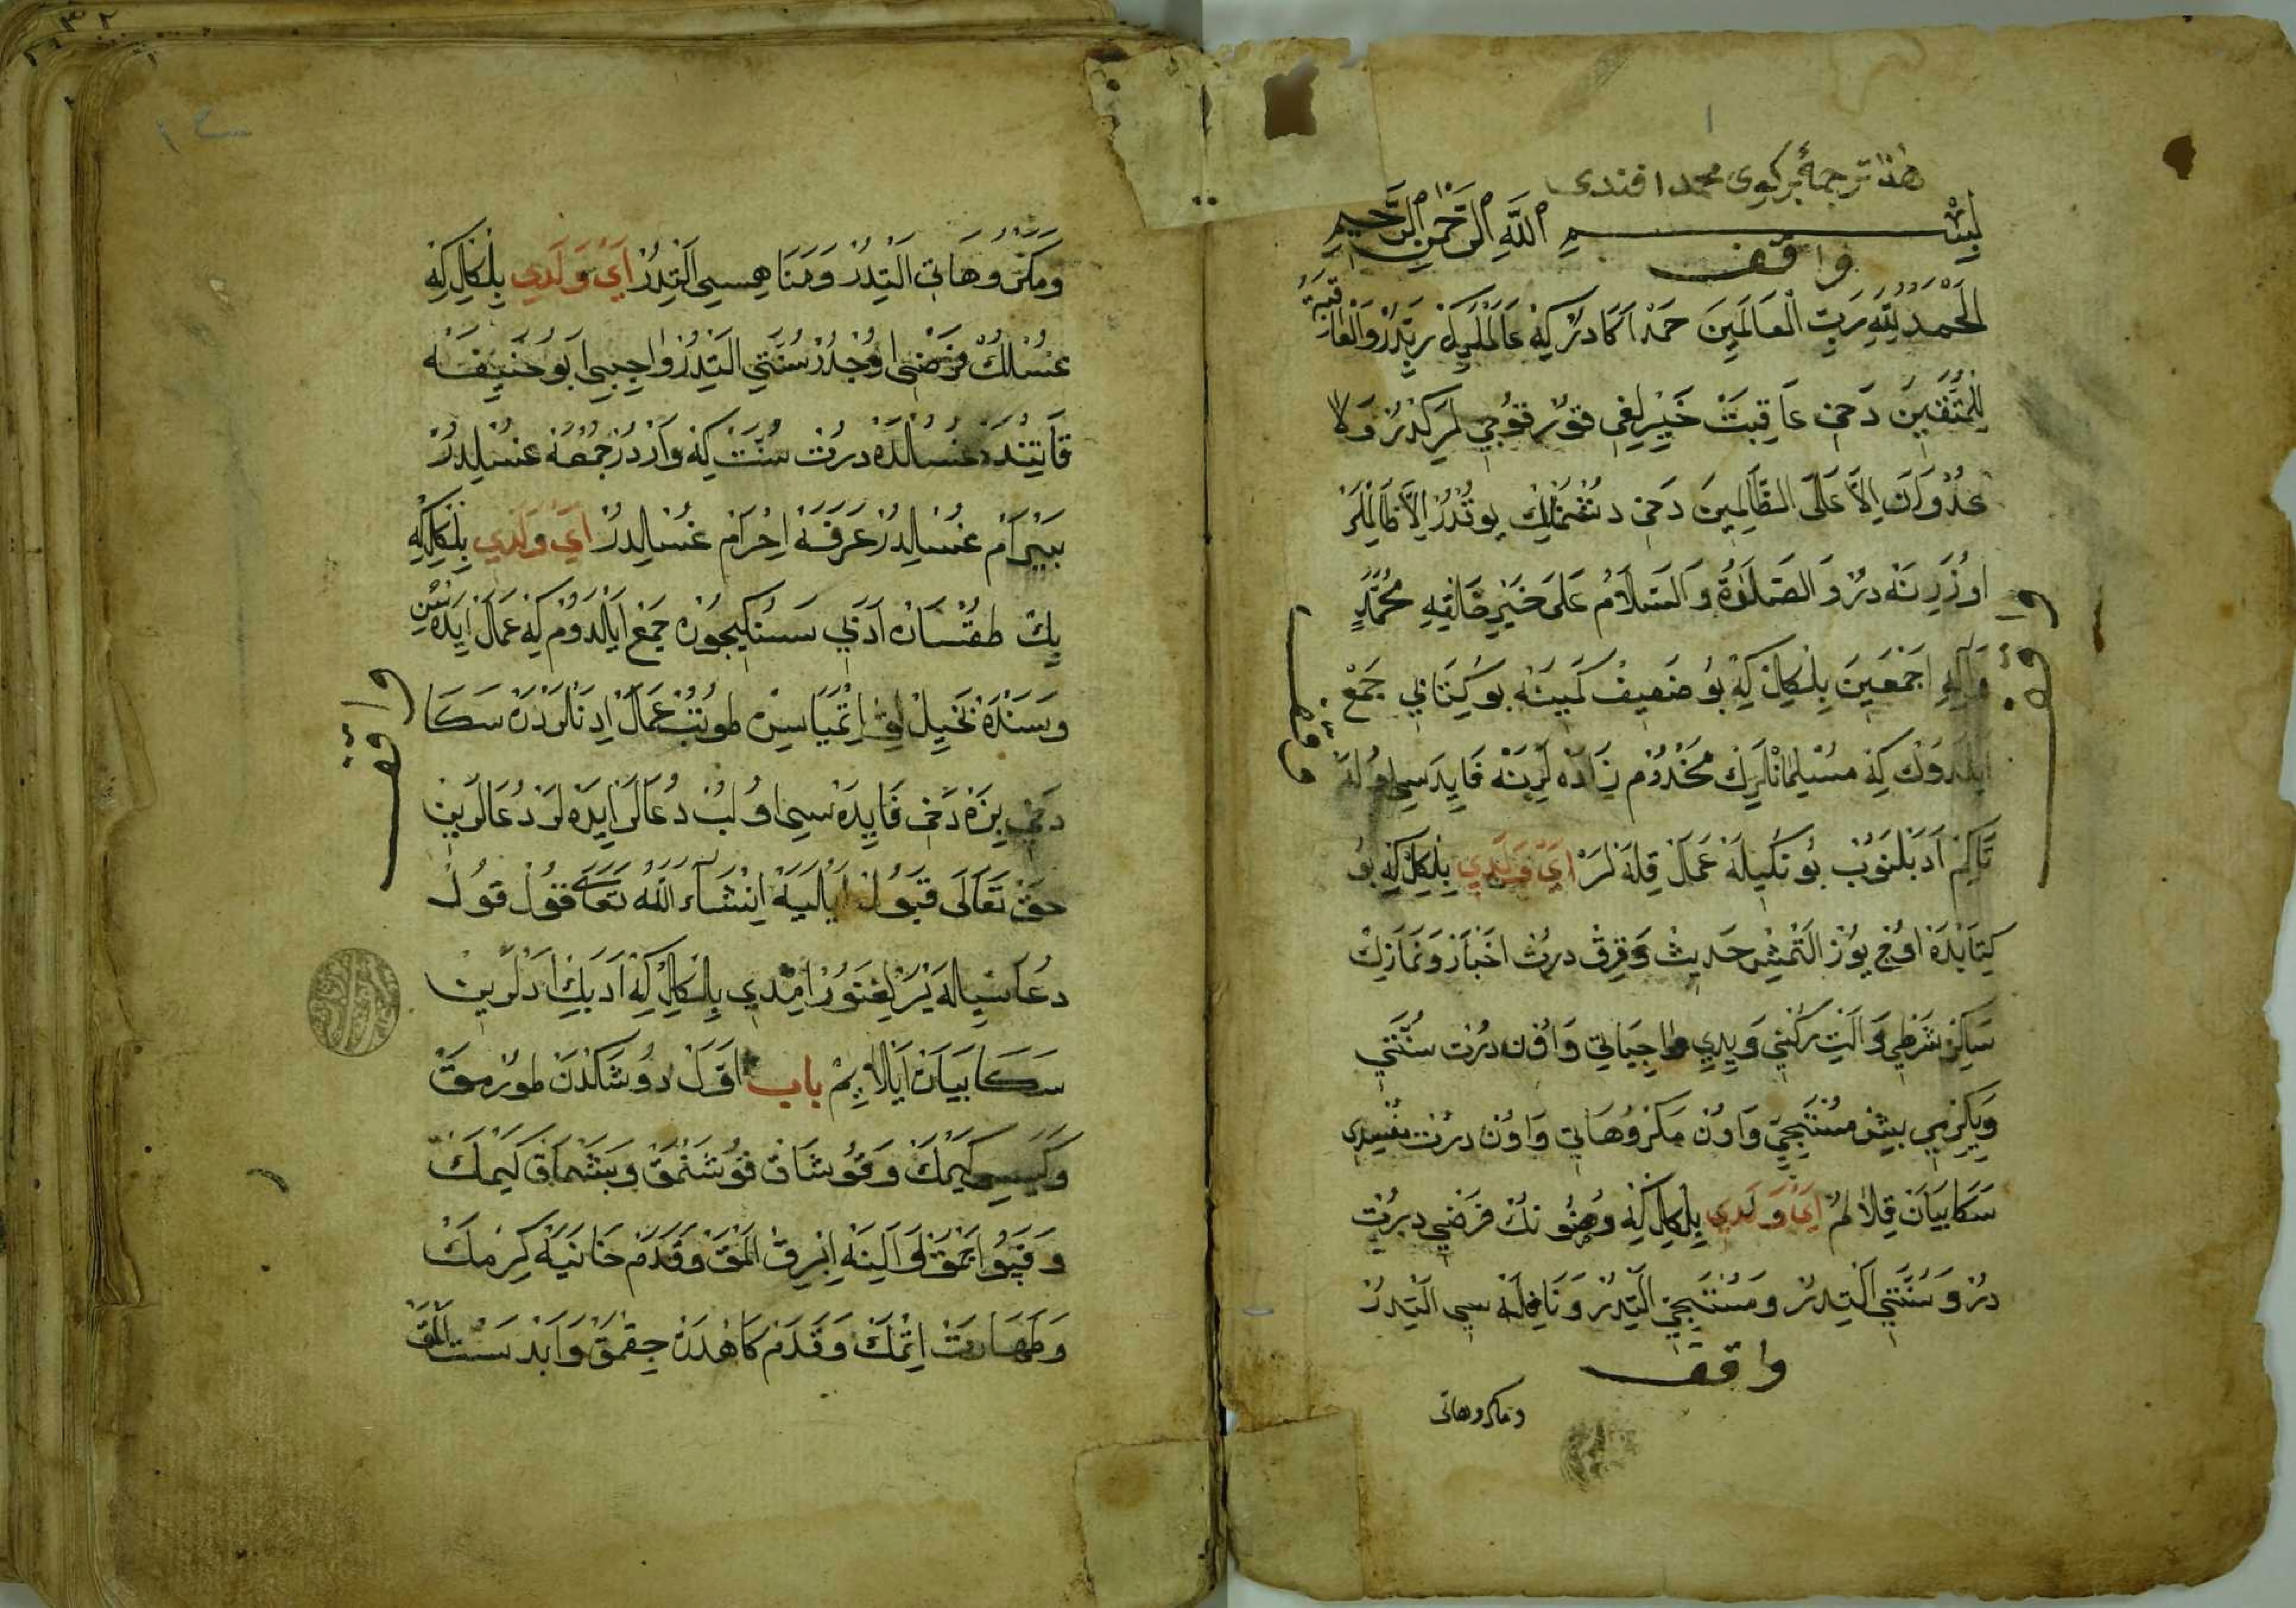 هذا ترجمۀ بركوى محمد افندى
بِسْمِ اللَّهِ الرَّحْمَنِ الرَّحِيمِ
واقف
اَلْحَمْدُ لِلّٰهِ رَبِّ الْعَالَمِينَ حَمْد اَكَا دُرْ كِه عَالَمْلَرِكْ رَبِّدُرْ وَالْعَاقِبَةُ
لِلْمُتَّقِينَ دَخِى عَاقِبَتْ خَيْرلِغِى قورْقوُجِى لَرِكدُرْ وَلَا
عُدْوَانَ اِلَّا عَلَى الظَّالِمِينَ دَخِى دُشْمَنْلِكْ يوقْدُرْ اِلَّا ظَالِمْلَرْ
اوُزَرِنَه دُرْ وَالصَّلَوةُ وَالسَّلَامُ عَلَى خَيْرِ خَلْقِهِ مُحَمَّدٍ
وَآلِهِ اَجْمَعِينَ بِلْكِلْ كِه بُو ضَعِيفْ كَمِينَه بُو كِتَابِى جَمْعْ
اَيْلَدوُكْ كِه مُسْلِمَانْلَرِكْ مَخْدُومْ زَادَه لَرِنَه فَايِدَسِى اوُلَه
تَاكِمْ اَدَبْلَنوُبْ بُونُكِيلَه عَمَلْ قِلَه لَرْ اَىْ وَلَدِى بِلْكِلْ كِه بُو
كِتَابْدَه اوُچْ يوُزْ اَلْتْمِشْ حَدِيثْ وَقِرقْ دُرْتْ اَخْبَارْ وَنَمَازِكْ
سَكِزْ شَرْطِى وَاَلْتِ رُكْنِى وَيِدِى وَاجِبَاتِى وَاوُن دُرْت سُنَّتِى
وَيِكِرْمِى بِشْ مُسْتَحَبِّى وَاوُنْ مَكْرُوهَاتِى وَاوُنْ دُرْت مُفْسِدِى
سَكَا بَيَانْ قِلَالُمْ اَىْ وَلَدِى بِلْكِلْ كِه وُضُونُكْ فَرْضِى دُرْت
دُرْ وَسُنَّتِى اَلْتِدُرْ وَمُسْتَحَبِّى اَلْتِدُرْ وَنَافِلَه سِى اَلْتِدُرْ
واقف
ومكروهاتى
وَمَكْرُوهَاتِى اَلْتِدُرْ وَمَنَاهِيسِى اَلْتِدُرْ اَىْ وَلَدِى بِلْكِلْ كِه
غُسْلُكْ فَرْضِى اوُچْدُرْ سُنَّتِى اَلْتِدُرْ وَاجِبِى اَبُو حَنِيفَه
قَاتِنْدَه غُسُلْدَه دُرْت سُنَّتْ كِه وَارْدُرْ جُمْعَه غُسْلِدُرْ
بَيْرَامْ غُسْلِدُرْ عَرَفَه اِحْرَامْ غُسْلِدُرْ اَىْ وَلَدِى بِلْكِلْ كِه
بِكْ طُقْسَانْ اَدَبِى سَنُكِيچُونْ جَمْعْ اَيْلَدوُمْ كِه عَمَلْ اِيدَه سِنْ
وَسَنْدَه بَخِيلْلِقْ اِتْمِيَاسِنْ طوُتُبْ عَمَلْ اِدَنْلَرْدَنْ سَكَا
دَخِى بِزَه دَخِى فَايِدَه سِى اوُلُبْ دُعَالَرْ اِيدَه لَرْ دُعَالَرِينْ
حَقْ تَعَالَى قَبُولْ اَيْلَيَه اِنْشَاءَ اللّٰهُ تَعَالَى قوُلْ قوُلْ
دُعَاسِيلَه يَرْلِغَنوُرْ اِمْدِى بِلْكِلْ كِه اَدَبِكْ اَدْلَرِينْ
سَكَا بَيَانْ اَيْلَايِمْ باب اَوَّلْ دوُشَكْدَنْ طوُرْمَقْ
وَكَيْسِى كَيْمَكْ وَقوُشَاقْ قوُشَنْمَقْ وَبَشْمَاقْ كَيْمَكْ
وَقَپُو اَچْمَقْ وَاَلِنَه اِبْرِيقْ اَلْمَقْ وَقَدَمْ خَانَيَه كِرْمَكْ
وَطَهَارَتْ اِتْمَكْ وَقَدَمْكَاهْدَنْ چِقْمَقْ وَاَبْدَسْت اَلْمَقْ
واقف